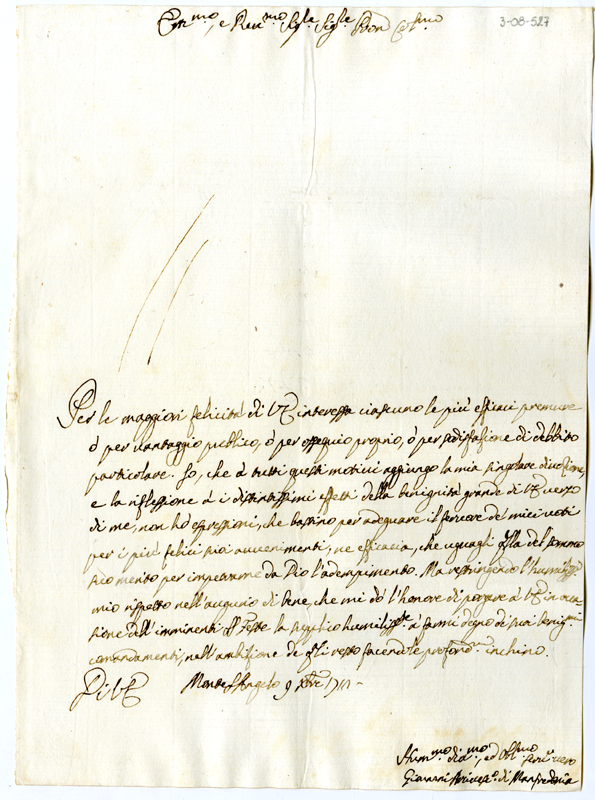 Em.mo, e Rev.mo Sig.re Sig.re Pron Col.mo
3-08-527
Per le maggiori felicità di VE interessa ciascuno le più efficaci premure
ò per vantaggio publico, ò per ossequio proprio, ò per sodisfazione di debbito
particolare. Io, che à tutti questi motivi aggiungo la mia singolare divozione,
e la riflessione à i distintissimi effetti della benignità grande di VE verzo
di me, non hò espressioni, che bastino per adeguare il fervore de miei voti
per i più felici suoi avvenimenti, ne efficacia, che uguagli qlla del sommo
suo merito per impetrarne da Dio l'adempimento. Ma restringendo l'humiliss.o
mio rispetto nell'augurio di bene, che mi dò l'honore di porgere à VE in occa-
sione dell'imminenti S. Feste la supplico humiliss.te à farmi degno di suoi benig.mi
comandamenti, nell'ambizione de qli resto facendole profond.mo inchino.
Di VE
Monte S. Angelo 9 Xbre 1711
Hum.mo div.mo, ed Obl.mo serv.re vero
Giovanni Arcivesc.o di Manfredonia